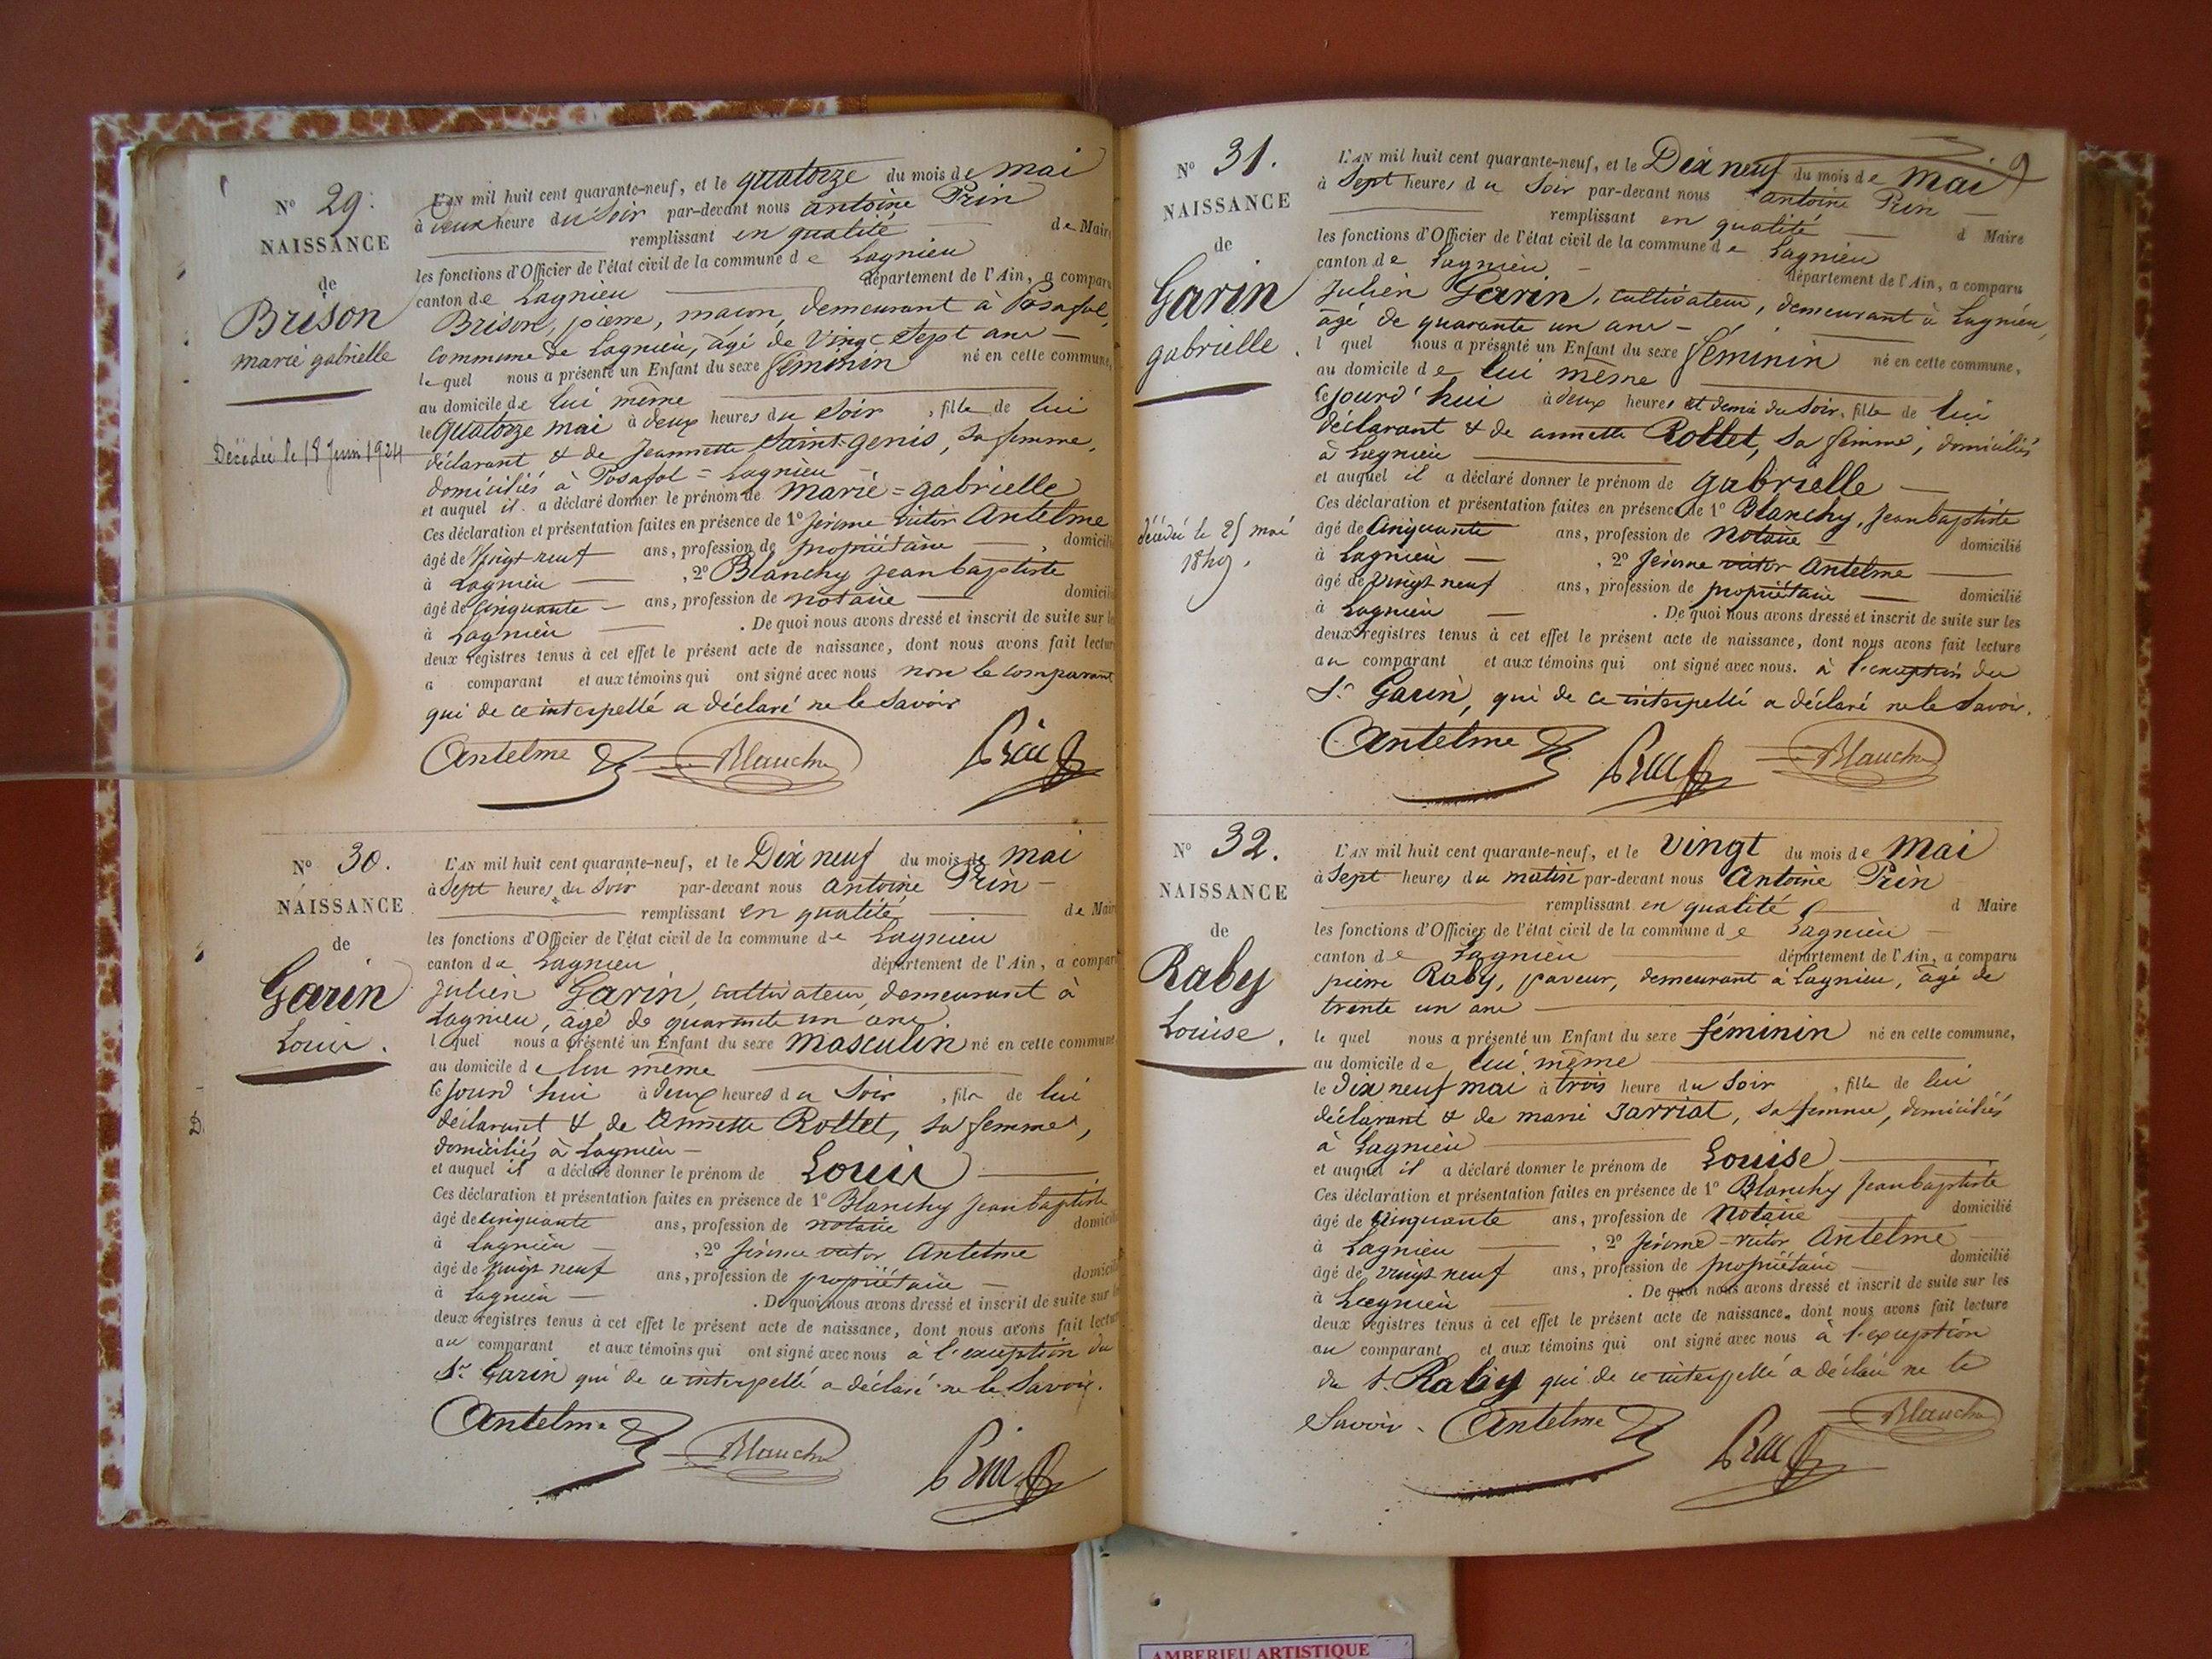 N° 29.
NAISSANCE
de
Brison
marie gabrielle
Décédée le 18 Juin 1924
L'AN mil huit cent quarante-neuf, et le quatorze du mois de mai
à deux heure du Soir par-devant nous antoine Prin
remplissant en qualité de Maire
les fonctions d'Officier de l'état civil de la commune de Lagnieu
canton de Lagnieu département de l'Ain, a comparu
Brison, pierre, maçon, demeurant à Posafol,
commune de Lagnieu, âgé de Vingt Sept ans
lequel nous a présenté un Enfant du sexe féminin né en cette commune,
au domicile de lui même
le quatorze mai à deux heures du Soir, fille de lui
déclarant & de Jeannette Saint-genis, sa femme,
domiciliés à Posafol = Lagnieu
et auquel il a déclaré donner le prénom de marie = gabrielle
Ces déclaration et présentation faites en présence de 1° Jérome victor Antelme
âgé de Vingt neuf ans, profession de propriétaire, domicilié
à Lagnieu, 2° Blanchy jean baptiste
âgé de Cinquante ans, profession de notaire domicilié
à Lagnieu. De quoi nous avons dressé et inscrit de suite sur les
deux registres tenus à cet effet le présent acte de naissance, dont nous avons fait lecture
a comparant et aux témoins qui ont signé avec nous non le comparant
qui de ce interpellé a déclaré ne le Savoir
Antelme Blanchy Prin
N° 30.
NAISSANCE
de
Garin
Louis.
D.
L'AN mil huit cent quarante-neuf, et le Dix neuf du mois de mai
à Sept heures du Soir par-devant nous antoine Prin
remplissant en qualité de Maire
les fonctions d'Officier de l'état civil de la commune de Lagnieu
canton de Lagnieu département de l'Ain, a comparu
Julien Garin, cultivateur, demeurant à
Lagnieu, âgé de quarante un ans
lequel nous a présenté un Enfant du sexe masculin né en cette commune
au domicile de lui même
cejourd'hui à deux heures du Soir, fils de lui
déclarant & de Annette Rollet, sa femme,
domiciliés à Lagnieu
et auquel il a déclaré donner le prénom de Louis
Ces déclaration et présentation faites en présence de 1° Blanchy jean baptiste
âgé de cinquante ans, profession de notaire domicilié
à Lagnieu, 2° Jérome victor Antelme
âgé de vingt neuf ans, profession de propriétaire domicilié
à Lagnieu. De quoi nous avons dressé et inscrit de suite sur les
deux registres tenus à cet effet le présent acte de naissance, dont nous avons fait lecture
au comparant et aux témoins qui ont signé avec nous à l'exception du
Sr Garin qui de ce interpellé a déclaré ne le Savoir.
Antelme Blanchy Prin
N° 31.
NAISSANCE
de
Garin
gabrielle.
décédée le 25 mai
1849.
9
L'AN mil huit cent quarante-neuf, et le Dix neuf du mois de mai
à Sept heures du Soir par-devant nous antoine Prin
remplissant en qualité d Maire
les fonctions d'Officier de l'état civil de la commune de Lagnieu
canton de Lagnieu département de l'Ain, a comparu
Julien Garin, cultivateur, demeurant à Lagnieu,
âgé de quarante un ans
l quel nous a présenté un Enfant du sexe féminin né en cette commune,
au domicile de lui même
cejourd'hui à deux heures et demie du Soir, fille de lui
déclarant & de annette Rollet, sa femme, domiciliés
à Lagnieu
et auquel il a déclaré donner le prénom de gabrielle
Ces déclaration et présentation faites en présence de 1° Blanchy, jean baptiste
âgé de Cinquante ans, profession de Notaire domicilié
à Lagnieu, 2° Jérome victor Antelme
âgé de vingt neuf ans, profession de propriétaire domicilié
à Lagnieu. De quoi nous avons dressé et inscrit de suite sur les
deux registres tenus à cet effet le présent acte de naissance, dont nous avons fait lecture
au comparant et aux témoins qui ont signé avec nous. à l'exception du
Sr Garin, qui de ce interpellé a déclaré ne le Savoir.
Antelme Prin Blanchy
N° 32.
NAISSANCE
de
Raby
Louise.
L'AN mil huit cent quarante-neuf, et le vingt du mois de mai
à Sept heures du matin par-devant nous Antoine Prin
remplissant en qualité d Maire
les fonctions d'Officier de l'état civil de la commune de Lagnieu
canton de Lagnieu département de l'Ain, a comparu
pierre Raby, paveur, demeurant à Lagnieu, âgé de
trente un ans
le quel nous a présenté un Enfant du sexe féminin né en cette commune,
au domicile de lui même
le dix neuf mai à trois heure du Soir, fille de lui
déclarant & de marie Jarriat, sa femme, domiciliés
à Lagnieu
et auquel il a déclaré donner le prénom de Louise
Ces déclaration et présentation faites en présence de 1° Blanchy jean baptiste
âgé de cinquante ans, profession de Notaire domicilié
à Lagnieu, 2° Jérome-victor Antelme
âgé de vingt neuf ans, profession de propriétaire domicilié
à Lagnieu. De quoi nous avons dressé et inscrit de suite sur les
deux registres tenus à cet effet le présent acte de naissance, dont nous avons fait lecture
au comparant et aux témoins qui ont signé avec nous à l'exception
du S. Raby qui de ce interpellé a déclaré ne le
Savoir. Antelme Prin Blanchy
AMBERIEU ARTISTIQUE